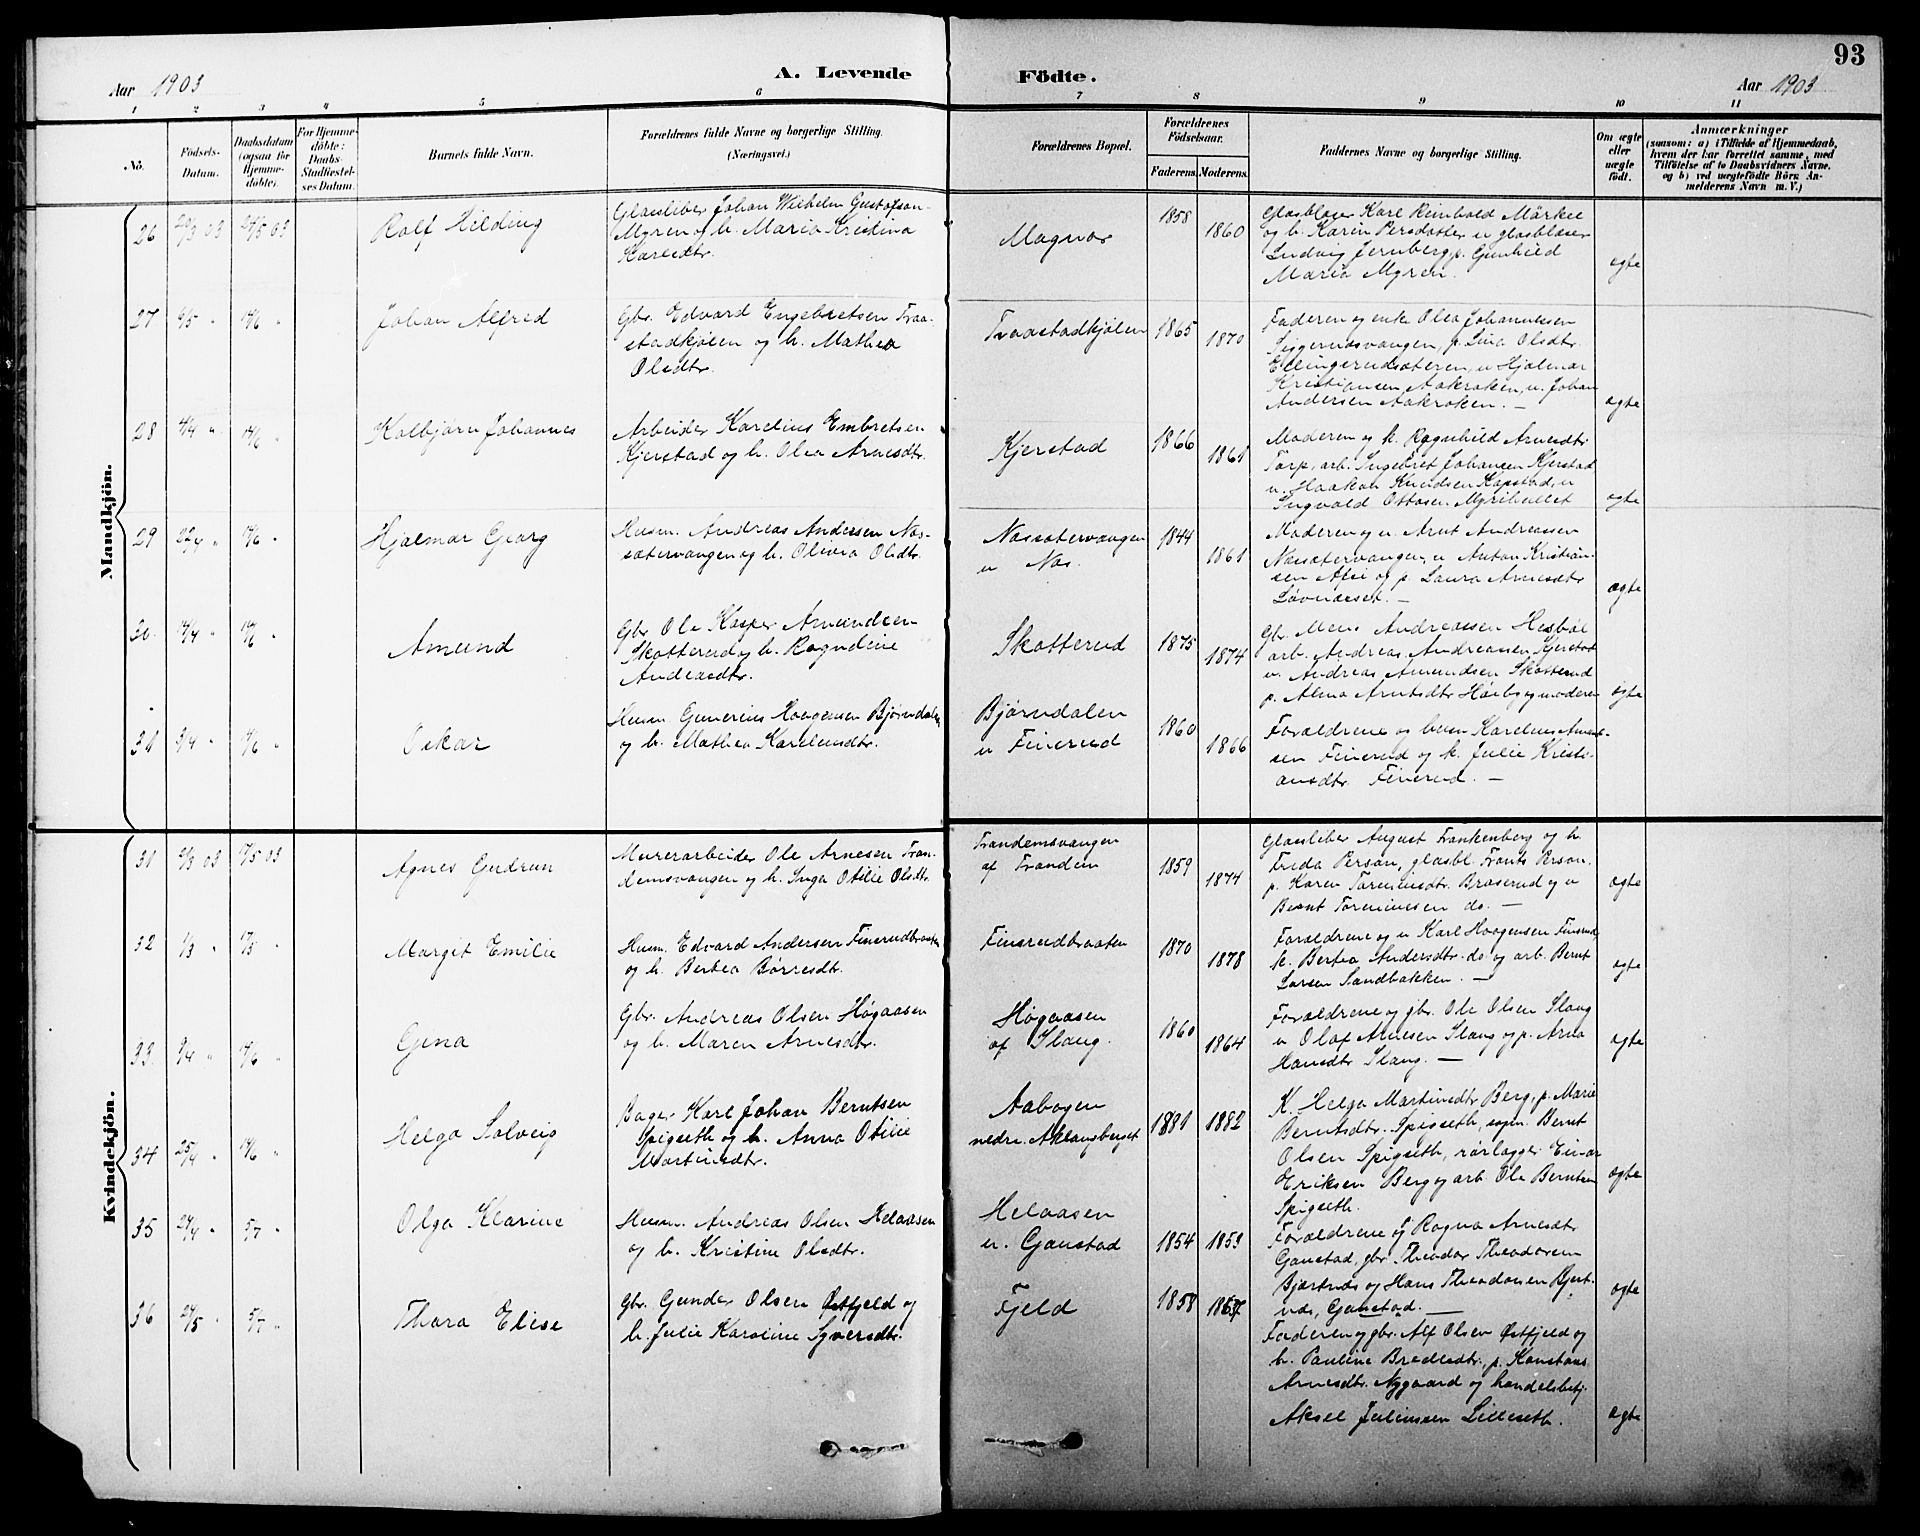 Aar 1903
A. Levende Födte.
Aar 1903
93
1 2 3 4 5 6 7 8 9 10 11
No.
Födsels-
Datum.
Daabsdatum
(ogsaa for
Hjemme-
döbte).
For Hjemme-
döbte:
Daabs-
Stadfæstel-
ses Datum.
Barnets fulde Navn.
Forældrenes fulde Navne og borgerlige Stilling.
(Næringsvei.)
Forældrenes Bopæl.
Forældrenes
Födselsaar.
Faderens. Moderens.
Faddernes Navne og borgerlige Stilling.
Om ægte
eller
uægte
födt.
Anmærkninger
(saasom: a) i Tilfælde af Hjemmedaab,
hvem der har forrettet samme, med
Tilföielse af to Daabsvidners Navne,
og b) ved uægtefödte Börn An-
melderens Navn m. V.)
Mandkjön.
26
03
03
Rolf Hilding
Glassliber Johan Wilhelm Gustafson
Myren og h. Maria Kristina
Karlsdtr.
Magnor
1858
1860
Glasblåser Karl Reinhold Märkel
og h. Karin Persdotter u. glasblåser
Ludvig Jernberg, p. Gunhild
Maria Myren.
ægte
27
9/5 "
14/6 "
Johan Alfred
Gbr. Edvard Engebretsen Traa-
stadkjølen og h. Mathea
Olsdtr.
Traastadkjølen
1865
1870
Faderen og enke Olea Johannessen
Siggerudsvangen, p. Lina Olsdtr.
Ellingerudsæteren, u. Hjalmar
Kristiansen Aakroken, u. Johan
Andersen Aakroken. —
ægte
28
4/4 "
14/6 "
Kolbjørn Johannes
Arbeider Karelius Embretsen
Kjerstad og h. Olea Arnesdtr.
Kjerstad
1866
1861
Moderen og k. Ragnhild Arnesdtr
Torp, arb. Ingebret Johansen Kjerstad
u. Haakon Knudsen Kapstad, u.
Ingvald Ottosen Myrihullet
ægte
29
22/4 "
14/6 "
Hjalmar Georg
Husm. Andreas Andersen Nos-
sætervangen og h. Olivia Olsdtr.
Nossætervangen
u. Nos.
1844
1861
Moderen og u. Arnt Andreassen
Nossætervangen, u. Anton Kristian-
sen og p. Laura Arnesdtr
Løvnæset. —
ægte
30.
14/4 "
14/6 "
Amund
Gbr. Ole Kasper Amundsen
Skotterud og h. Ragndine
Andersdtr.
Skotterud
1875
1874
Gbr. Mens Andreassen Hesbøl
arb. Andreas Andreassen Kjerstad
u. Andreas Amundsen Skotterud
p. Alma Arntsdtr Høiby og moderen
ægte
31
3/4 "
14/6 "
Oskar
Husm. Gunerius Haagensen Bjørndalen
og h. Mathea Kareliusdtr.
Bjørndalen
u. Finerud
1860
1866
Forældrene og husm Karelius Amund-
sen Finerud og k. Julie Kristi-
ansdtr. Finerud. —
Kvindekjön.
31
3/3 03
17/5 03
Agnes Gudrun
Murerarbeider Ole Arnesen Tran-
demsvangen og h. Inga Otilie Olsdtr.
Trandemsvangen
af Trandem
1859
1874
Glassliber August Frankenberg og h.
Frida Person, glasbl. Frants Person.
p. Karen Tareniusdtr. Braserud og u
Bernt Toreniusen do. —
ægte
32
1/3 "
17/5 "
Margit Emilie
Husm. Edvard Andersen Finsrudbraaten
og h. Bertea Børresdtr.
Finsrudbraaten
1870
1878
Forældrene og u Karl Haagensen Finsrud,
k. Bertea Andersdtr. do. og arb. Bernt
Larsen Sandbakken. —
ægte
33.
9/4 "
14/6 "
Gina
Gbr. Andreas Olsen Høgaasen
og h. Maren Arnesdtr.
Høgaasen
af Slang.
1860
1864
Forældrene og gbr. Ole Olsen Slang
u Olaf Arnesen Slang og p. Arna
Hansdtr Slang. —
ægte
34
25/4 "
14/6 "
Helga Solveig
Bager Karl Johan Berntsen
Spigseth og h. Anna Otilie
Martinsdtr.
Aabogen
nedre Aklangberget
1881
1882
K. Helga Martinsdtr Berg, p. Marie
Berntsdtr. Spigseth, sagm. Bernt
Olsen Spigseth, rørlægger Einar
Eriksen Berg og arb. Ole Berntsen
Spigseth.
ægte
35
24/4 "
5/7 "
Olga Klarine
Husm. Andreas Olsen Helaasen
og h. Kristine Olsdtr.
Helaasen
u. Gaustad
1854
1859
Forældrene og Ragna Arnesdtr
Gaustad, gbr. Theodor Theodorsen
Bjertnæs og Hans Theodorsen Bjert-
næs, Gaustad. —
ægte
36
24/5 "
5/7 "
Thora Elise
Gbr. Gunder Olsen Østfjeld og
h. Julie Karoline Syversdtr.
Fjeld
1858
Faderen og gbr. Alf Olsen Østfjeld og
h. Pauline Bredesdtr., p. Konstanse
Arnesdtr. Nygaard og handelsbetj.
Aksel Juliussen Lilleseth.
ægte